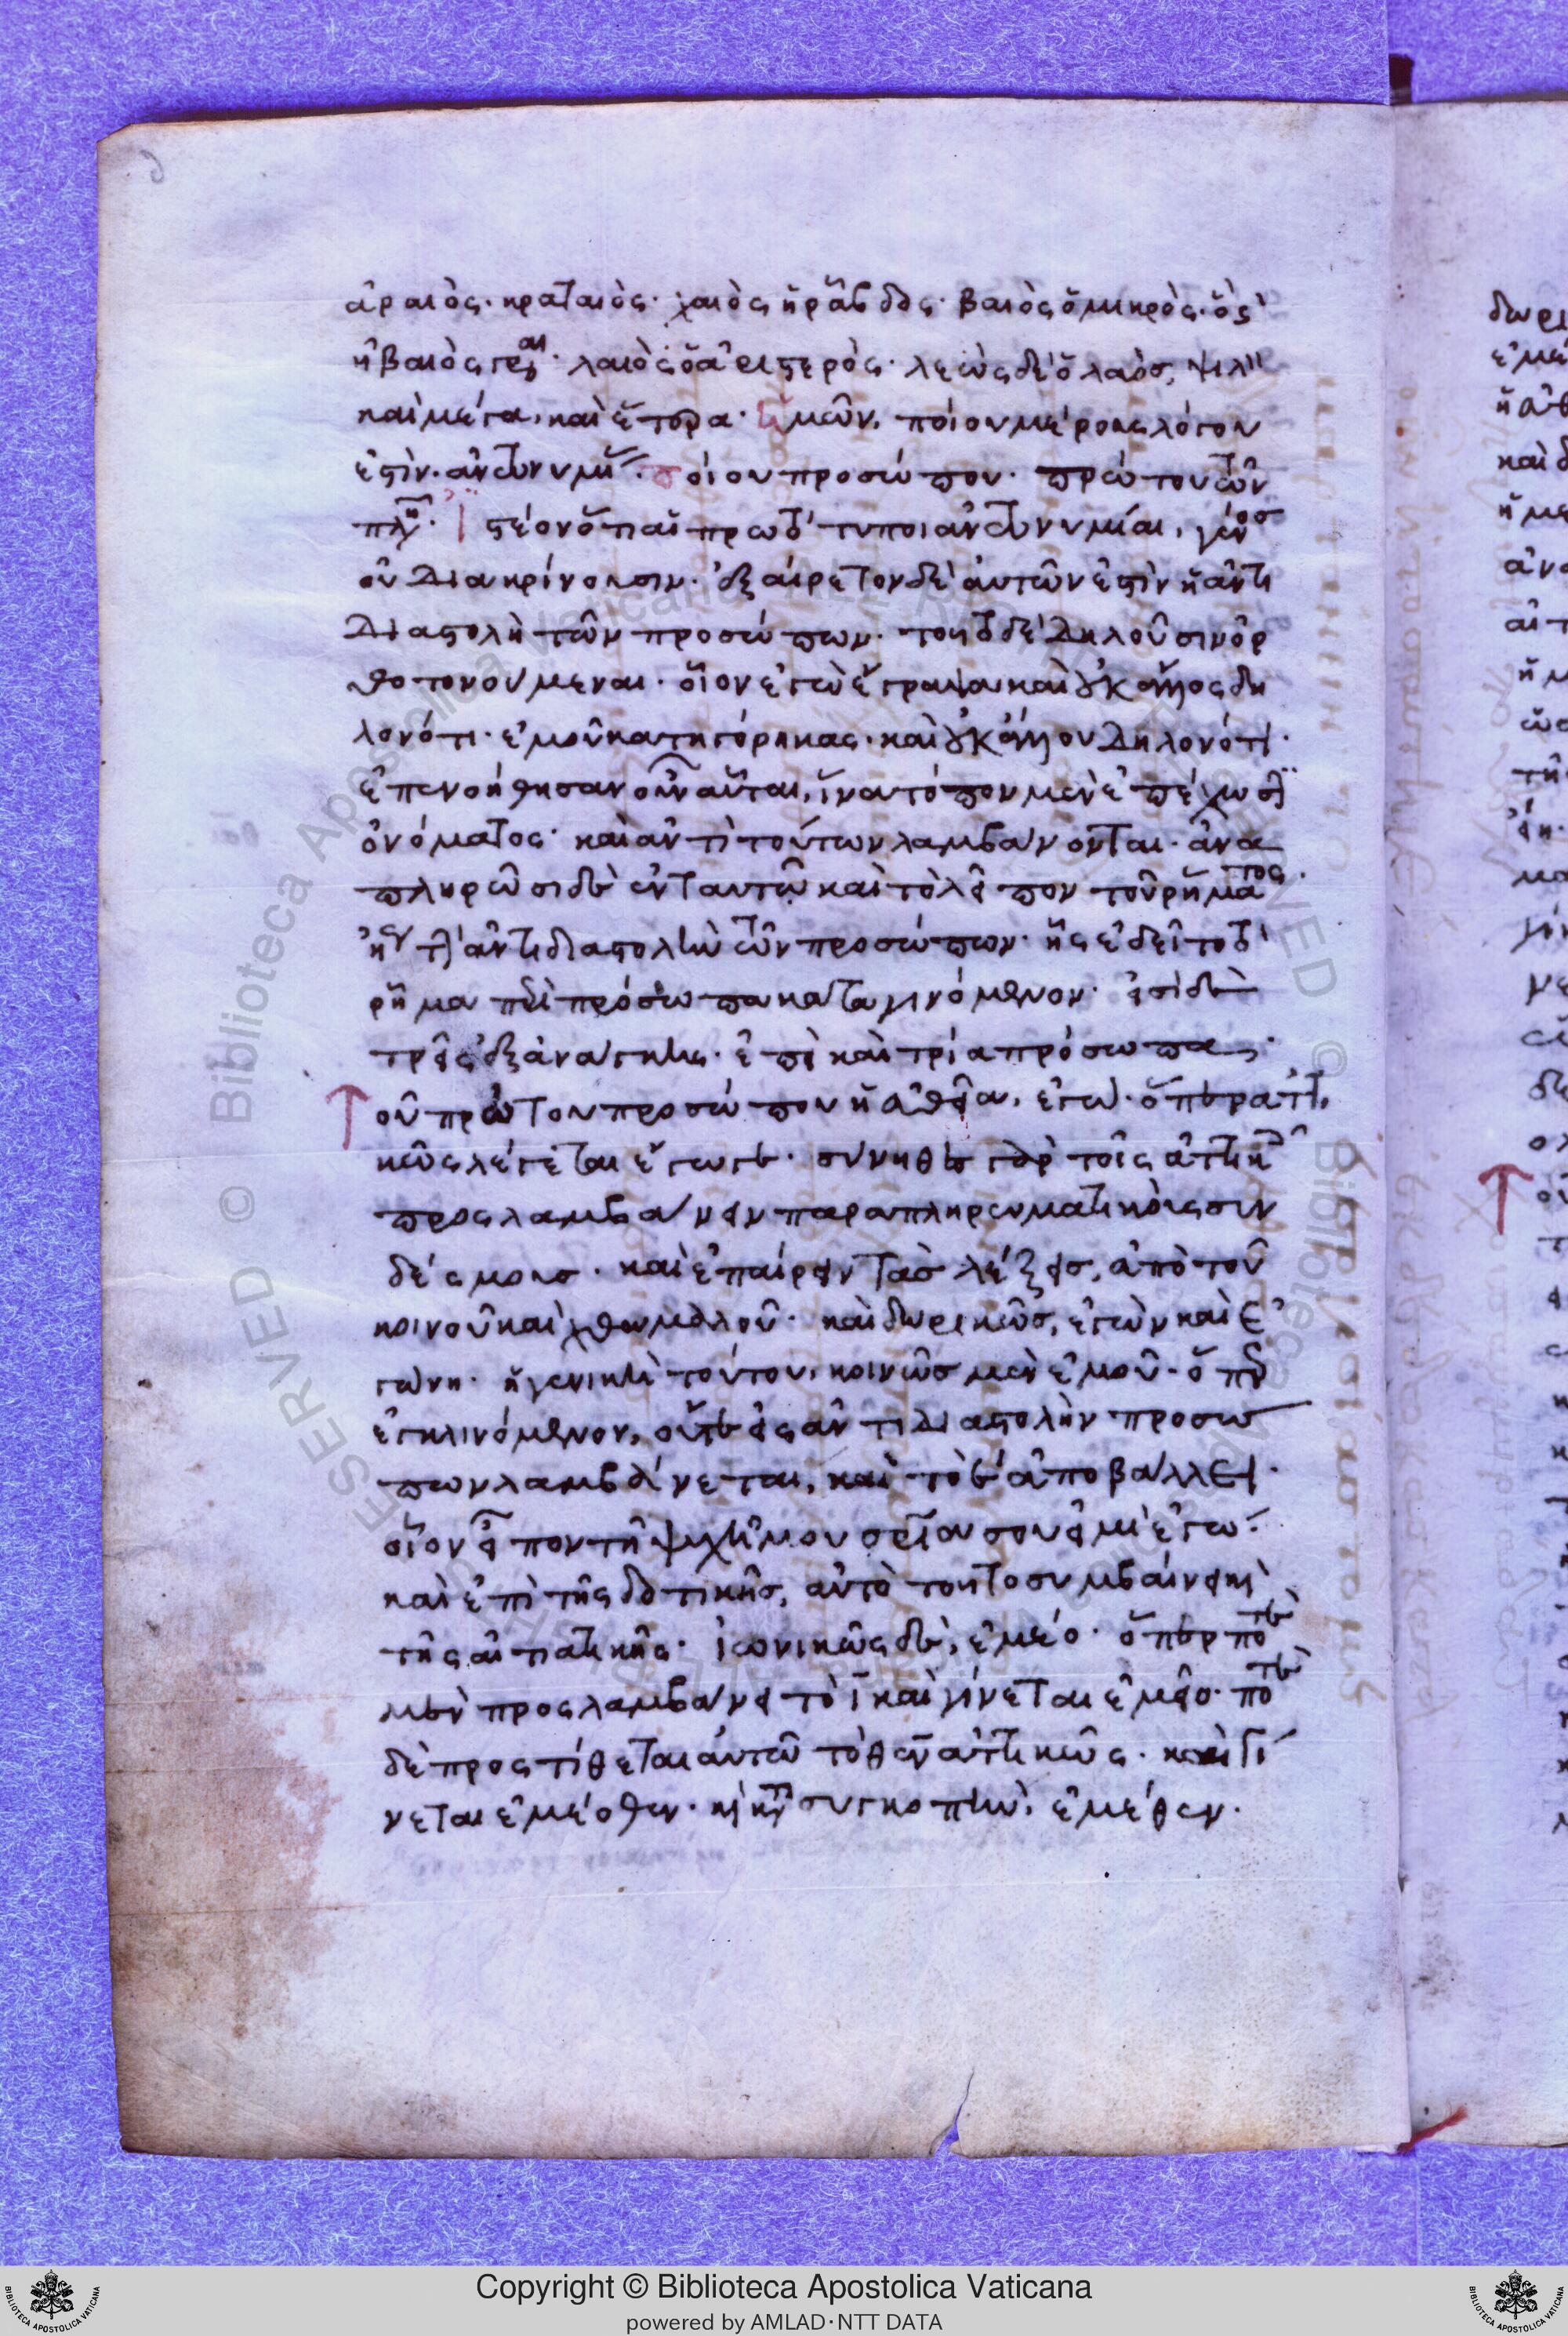 ἀραιὸς· κραταιὸς· χαιὸς ἡ ῥάβδος· βαιὸς ὁ μικρὸς·
ἢ βαιὸς λαιὸς ὁ ἀριστερὸς· λεὼς δὲ ὁ λαὸς, ψιλὴ
καὶ μέγα, καὶ ἕτερα· ἡμῶν, ποῖον μέρος λόγου
ἐστὶν· ἀντωνυμί ποίου προσώπου· πρώτου τῶν
πλη ἰστέον ὅτι αἱ πρωτότυποι ἀντωνυμίαι, γένος
οὐ διακρίνουσιν· ἐξαίρετον δὲ αὐτῶν ἐστὶν ἡ ἀντι
διαστολὴ τῶν προσώπων· τοῦτο δὲ δηλοῦσιν ὀρ
θοτονούμεναι· οἷον ἐγὼ ἔγραψα καὶ οὐκ ἄλλος δη
λονότι· ἐμοῦ κατηγόρηκας· καὶ οὐκ ἄλλου δηλονότι·
ἐπενοήθησαν οὖν αὗται, ἵνα τόπον μὲν ἐπέχωσιν
ὀνόματος· καὶ ἀντὶ τούτων λαμβάνονται· ἀνα
πληρῶσι δὲ ἐνταυτῶ καὶ τὸ λεῖπον τοῦ ῥήματος·
ἤγουν τὴν ἀντιδιαστολὴν τῶν προσώπων· ἧς ἐδεῖτο τὸ
ῥῆμα περὶ πρόσωπα καταγινόμενον· εἰσὶ δὲ
τρεῖς ἐξανάγκης· ἐπεὶ καὶ τρία πρόσωπα,
οὗ πρώτου προσώπου ἡ εὐθεῖα, ἐγώ· ὅπερ ἀττι
κῶς λέγεται ἔγωγε· σύνηθες γὰρ τοῖς ἀττικοῖς
προσλαμβάνειν παραπληρωματικοὺς συν
δέσμους· καὶ ἐπαίρειν τὰς λέξεις, ἀπὸ τοῦ
κοινοῦ καὶ χθαμαλοῦ· καὶ δωρικῶς, ἐγὼν καὶ ἐ
γώνη· ἡ γενικὴ τούτου, κοινῶς μὲν ἐμοῦ· ὅπερ
ἐγκλινόμενον, οὔτε εἰς ἀντιδιαστολὴν προσώ
πων λαμβάνεται, καὶ τὸ ε ἀποβάλλει·
οἷον εἶπον τῆ ψυχῆ μου σεῖα σου εἰμὶ ἐγώ·
καὶ ἐπὶ τῆς δοτικῆς, αὐτὸ τοῦτο συμβαίνει καὶ
τῆς αἰτιατικῆς· ἰωνικῶς δὲ, ἐμέο· ὅπερ ποτὲ
μὲν προσλαμβάνει τὸ ι καὶ γίνεται ἐμεῖο· ποτὲ
δὲ προστίθεται αὐτῶ τὸ θεν ἀττικῶς· καὶ γί
νεται ἐμέοθεν· καὶ κατὰ συγκοπὴν, ἐμέθεν·
Copyright © Biblioteca Apostolica Vaticana
powered by AMLAD·NTT DATA